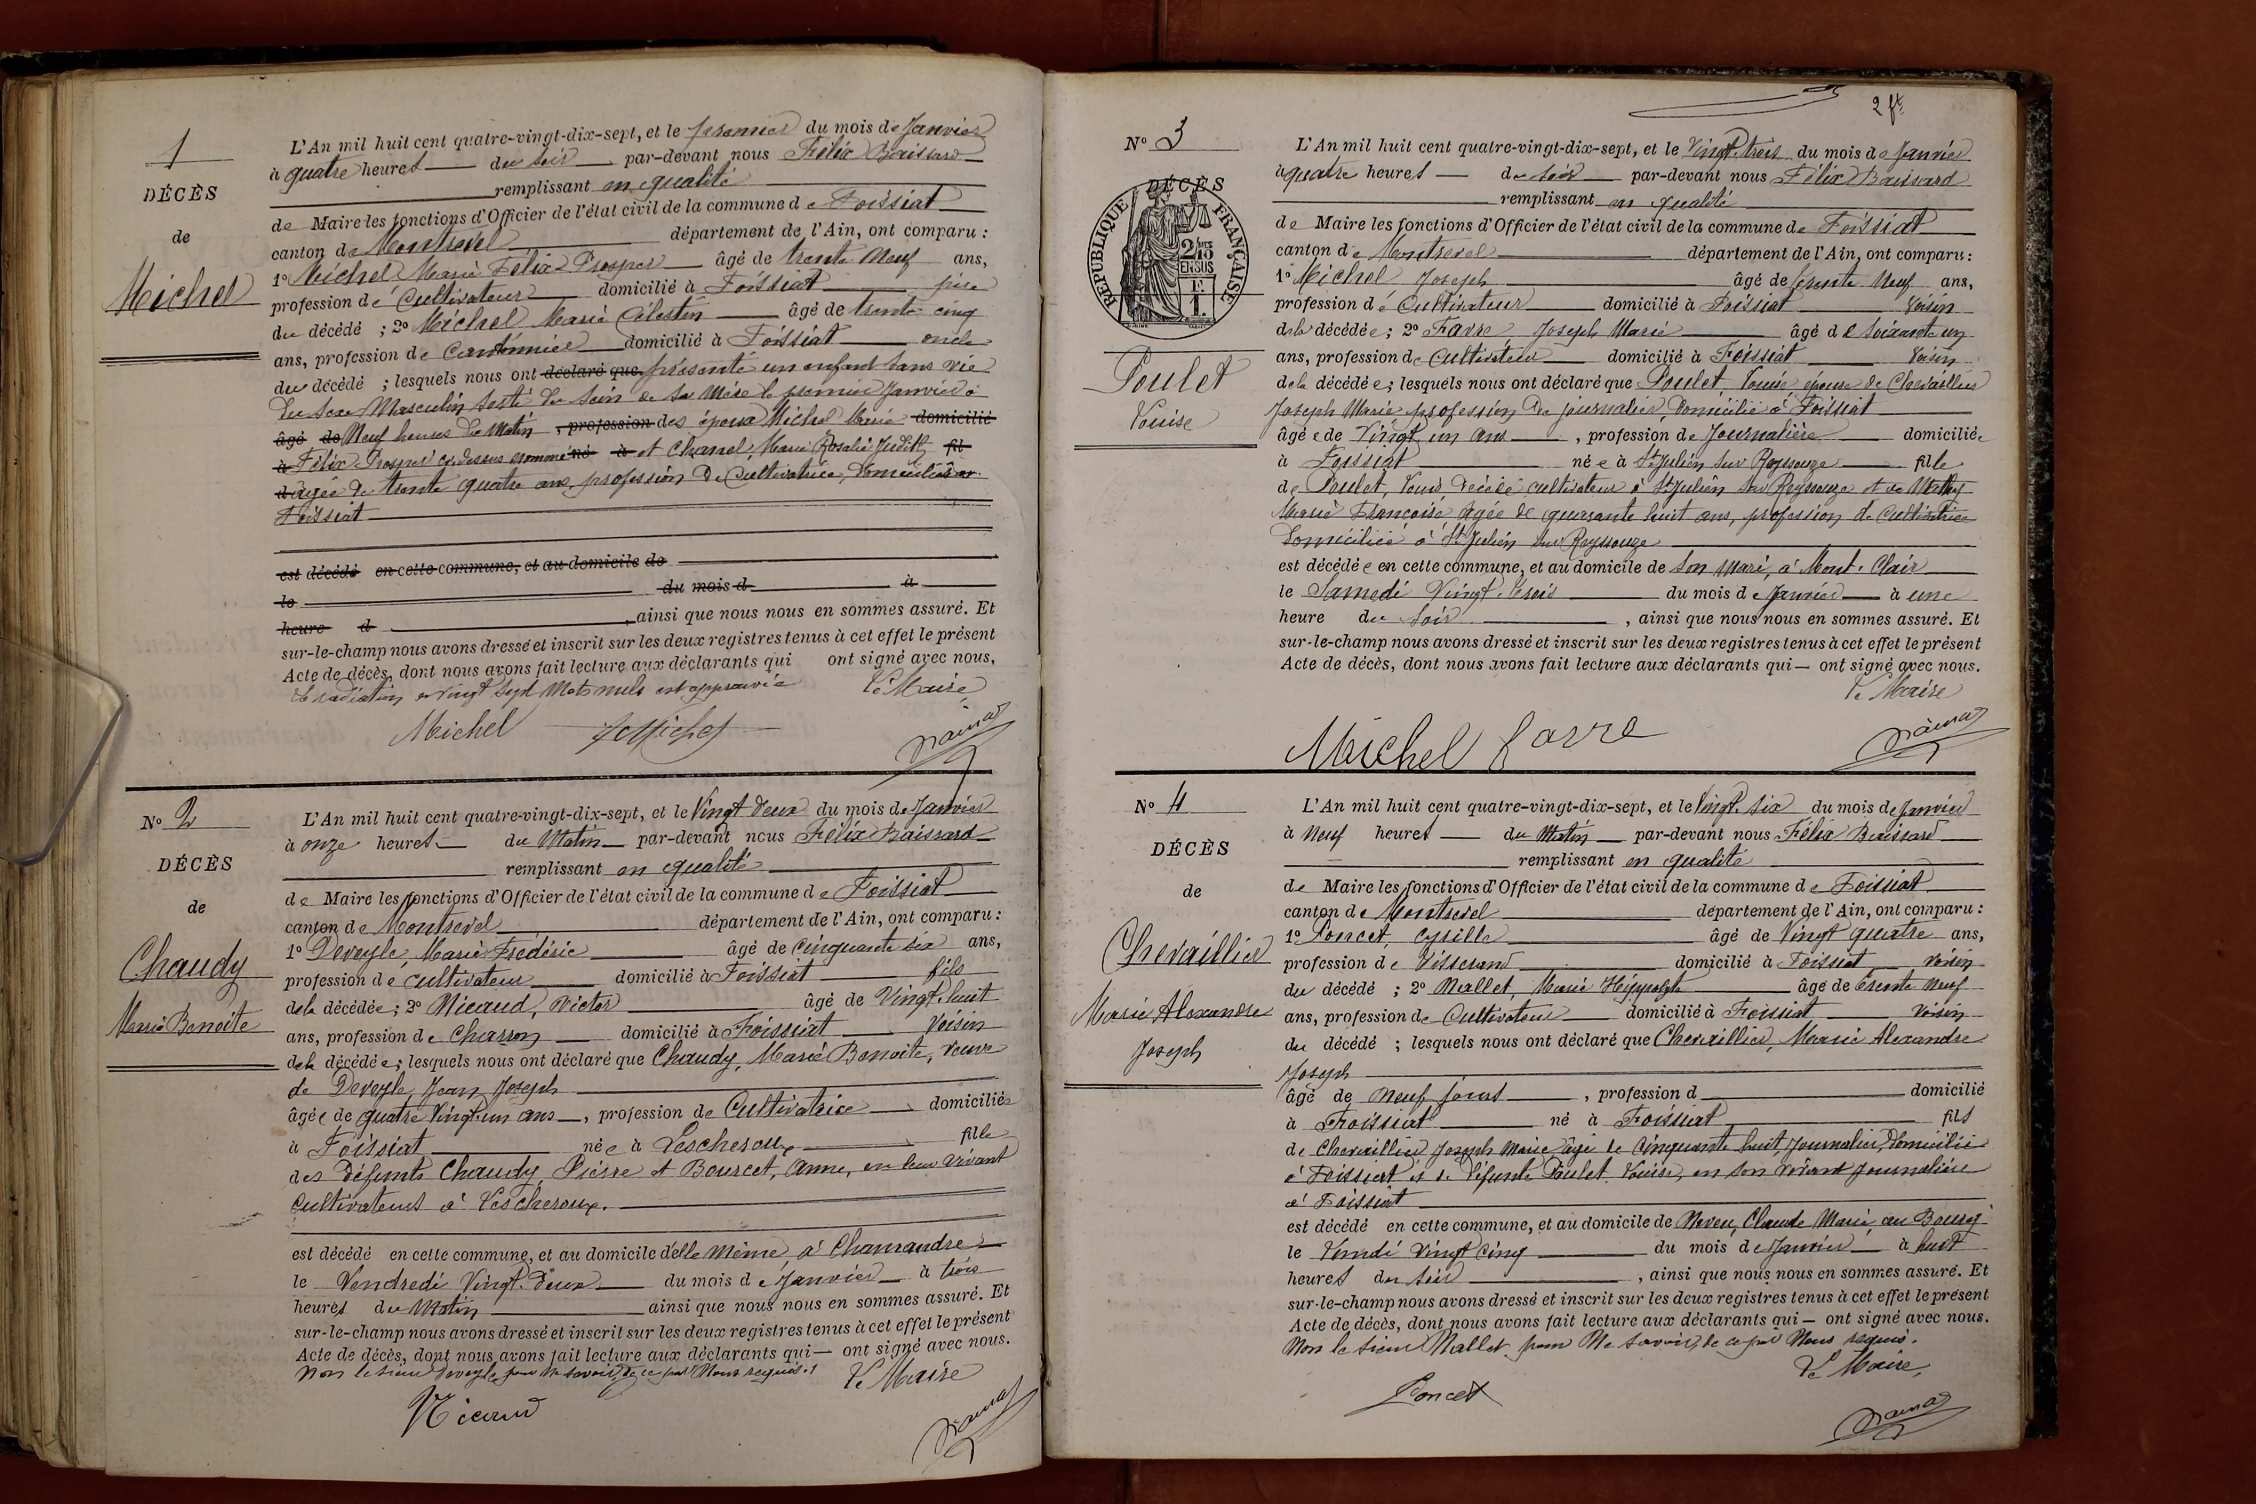 1
DÉCÈS
de
Michel
L'An mil huit cent quatre-vingt-dix-sept, et le premier du mois de Janvier
à quatre heures du soir par-devant nous Félix Baissard
remplissant en qualité
de Maire les fonctions d'Officier de l'état civil de la commune de Foissiat
canton de Montrevel département de l'Ain, ont comparu :
1º Michel Marie Félix Prosper âgé de trente neuf ans,
profession de Cultivateur domicilié à Foissiat père
du décédé ; 2º Michel Marie Célestin âgé de trente cinq
ans, profession de Cantonnier domicilié à Foissiat oncle
du décédé ; lesquels nous ont déclaré que présenté un enfant sans vie
du sexe Masculin sorti du sein de sa Mère le premier Janvier à
âgé de Neuf heures du Matin , profession des époux Michel Marie domicilié
à Félix Prosper ci-dessus nommé né à et Charnel, Marie Rosalie Judith fil
d âgée de trente quatre ans, profession de Cultivatrice, domiciliés à
Foissiat
est décédé en cette commune, et au domicile de
le du mois d à
heure d ainsi que nous nous en sommes assuré. Et
sur-le-champ nous avons dressé et inscrit sur les deux registres tenus à cet effet le présent
Acte de décès, dont nous avons fait lecture aux déclarants qui ont signé avec nous,
La radiation de vingt sept Mots nuls est approuvée Le Maire
Michel Michel
Nº 2
DÉCÈS
de
Chaudy
Marie Benoite
L'An mil huit cent quatre-vingt-dix-sept, et le Vingt deux du mois de Janvier
à onze heures du Matin par-devant nous Félix Baissard
remplissant en qualité
de Maire les fonctions d'Officier de l'état civil de la commune de Foissiat
canton de Montrevel département de l'Ain, ont comparu :
1º Deveyle, Marie Frédéric âgé de cinquante six ans,
profession de cultivateur domicilié à Foissiat fils
de la décédée ; 2º Nicaud, Victor âgé de Vingt huit
ans, profession de Charron domicilié à Foissiat Voisin
de la décédée ; lesquels nous ont déclaré que Chaudy, Marie Benoite, Veuve
de Deveyle, Jean Joseph
âgée de quatre Vingt un ans , profession de Cultivatrice domiciliée
à Foissiat née à Lescheroux fille
des défunts Chaudy, Pierre et Bourcet, Anne, en leur vivant
Cultivateurs à Lescheroux.
est décédé en cette commune, et au domicile d'elle même à Chamandre
le Vendredi Vingt deux du mois de Janvier à trois
heures du Matin ainsi que nous nous en sommes assuré. Et
sur-le-champ nous avons dressé et inscrit sur les deux registres tenus à cet effet le présent
Acte de décès, dont nous avons fait lecture aux déclarants qui — ont signé avec nous.
Non le sieur Deveyle pour ne savoir de ce par Nous requis. Le Maire
Nicaud
2 ft
Nº 3
DÉCÈS
RÉPUBLIQUE FRANÇAISE
2/10
EN SUS
Poulet
Louise
L'An mil huit cent quatre-vingt-dix-sept, et le Vingt trois du mois de Janvier
à quatre heures du soir par-devant nous Félix Baissard
remplissant en qualité
de Maire les fonctions d'Officier de l'état civil de la commune de Foissiat
canton de Montrevel département de l'Ain, ont comparu :
1º Michel Joseph âgé de trente Neuf ans,
profession de Cultivateur domicilié à Foissiat Voisin
de la décédée ; 2º Favre, Joseph Marie âgé de soixante un
ans, profession de Cultivateur domicilié à Foissiat Voisin
de la décédée ; lesquels nous ont déclaré que Poulet Louise épouse de Chevaillier
Joseph Marie profession de journalier, domicilié à Foissiat
âgée de Vingt un ans , profession de Journalière domiciliée
à Foissiat née à St Julien sur Reyssouze fille
de Poulet, Louis décédé cultivateur à St Julien sur Reyssouze et de Mathy
Marie Françoise âgée de quarante huit ans, profession de Cultivatrice
Domiciliée à St Julien sur Reyssouze
est décédée en cette commune, et au domicile de son Mari, à Mont-Clair
le Samedi Vingt trois du mois de Janvier à une
heure du soir , ainsi que nous nous en sommes assuré. Et
sur-le-champ nous avons dressé et inscrit sur les deux registres tenus à cet effet le présent
Acte de décès, dont nous avons fait lecture aux déclarants qui — ont signé avec nous.
Le Maire
Michel Favre
Nº 4
DÉCÈS
de
Chevaillier
Marie Alexandre
Joseph
L'An mil huit cent quatre-vingt-dix-sept, et le Vingt six du mois de Janvier
à Neuf heures du Matin par-devant nous Félix Baissard
remplissant en qualité
de Maire les fonctions d'Officier de l'état civil de la commune de Foissiat
canton de Montrevel département de l'Ain, ont comparu :
1º Poncet, Cyrille âgé de Vingt quatre ans,
profession de Tisserand domicilié à Foissiat voisin
du décédé ; 2º Mallet, Marie Hippolyte âgé de trente Neuf
ans, profession de Cultivateur domicilié à Foissiat Voisin
du décédé ; lesquels nous ont déclaré que Chevaillier, Marie Alexandre
Joseph
âgé de Neuf jours , profession d domicilié
à Foissiat né à Foissiat fils
de Chevaillier Joseph Marie âgé de Cinquante huit, journalier, domicilié
à Foissiat et de défunte Poulet Louise, en son vivant journalière
à Foissiat
est décédé en cette commune, et au domicile de Neveu, Claude Marie au Bourg
le Lundi Vingt Cinq du mois de Janvier à huit
heures du soir , ainsi que nous nous en sommes assuré. Et
sur-le-champ nous avons dressé et inscrit sur les deux registres tenus à cet effet le présent
Acte de décès, dont nous avons fait lecture aux déclarants qui — ont signé avec nous.
Non le sieur Mallet pour Ne savoir, de ce par Nous requis.
Le Maire,
Poncet